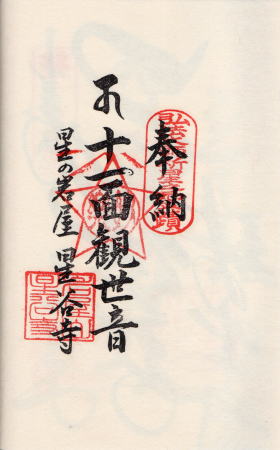 奉納
十一面観世音
星の岩屋 星谷寺